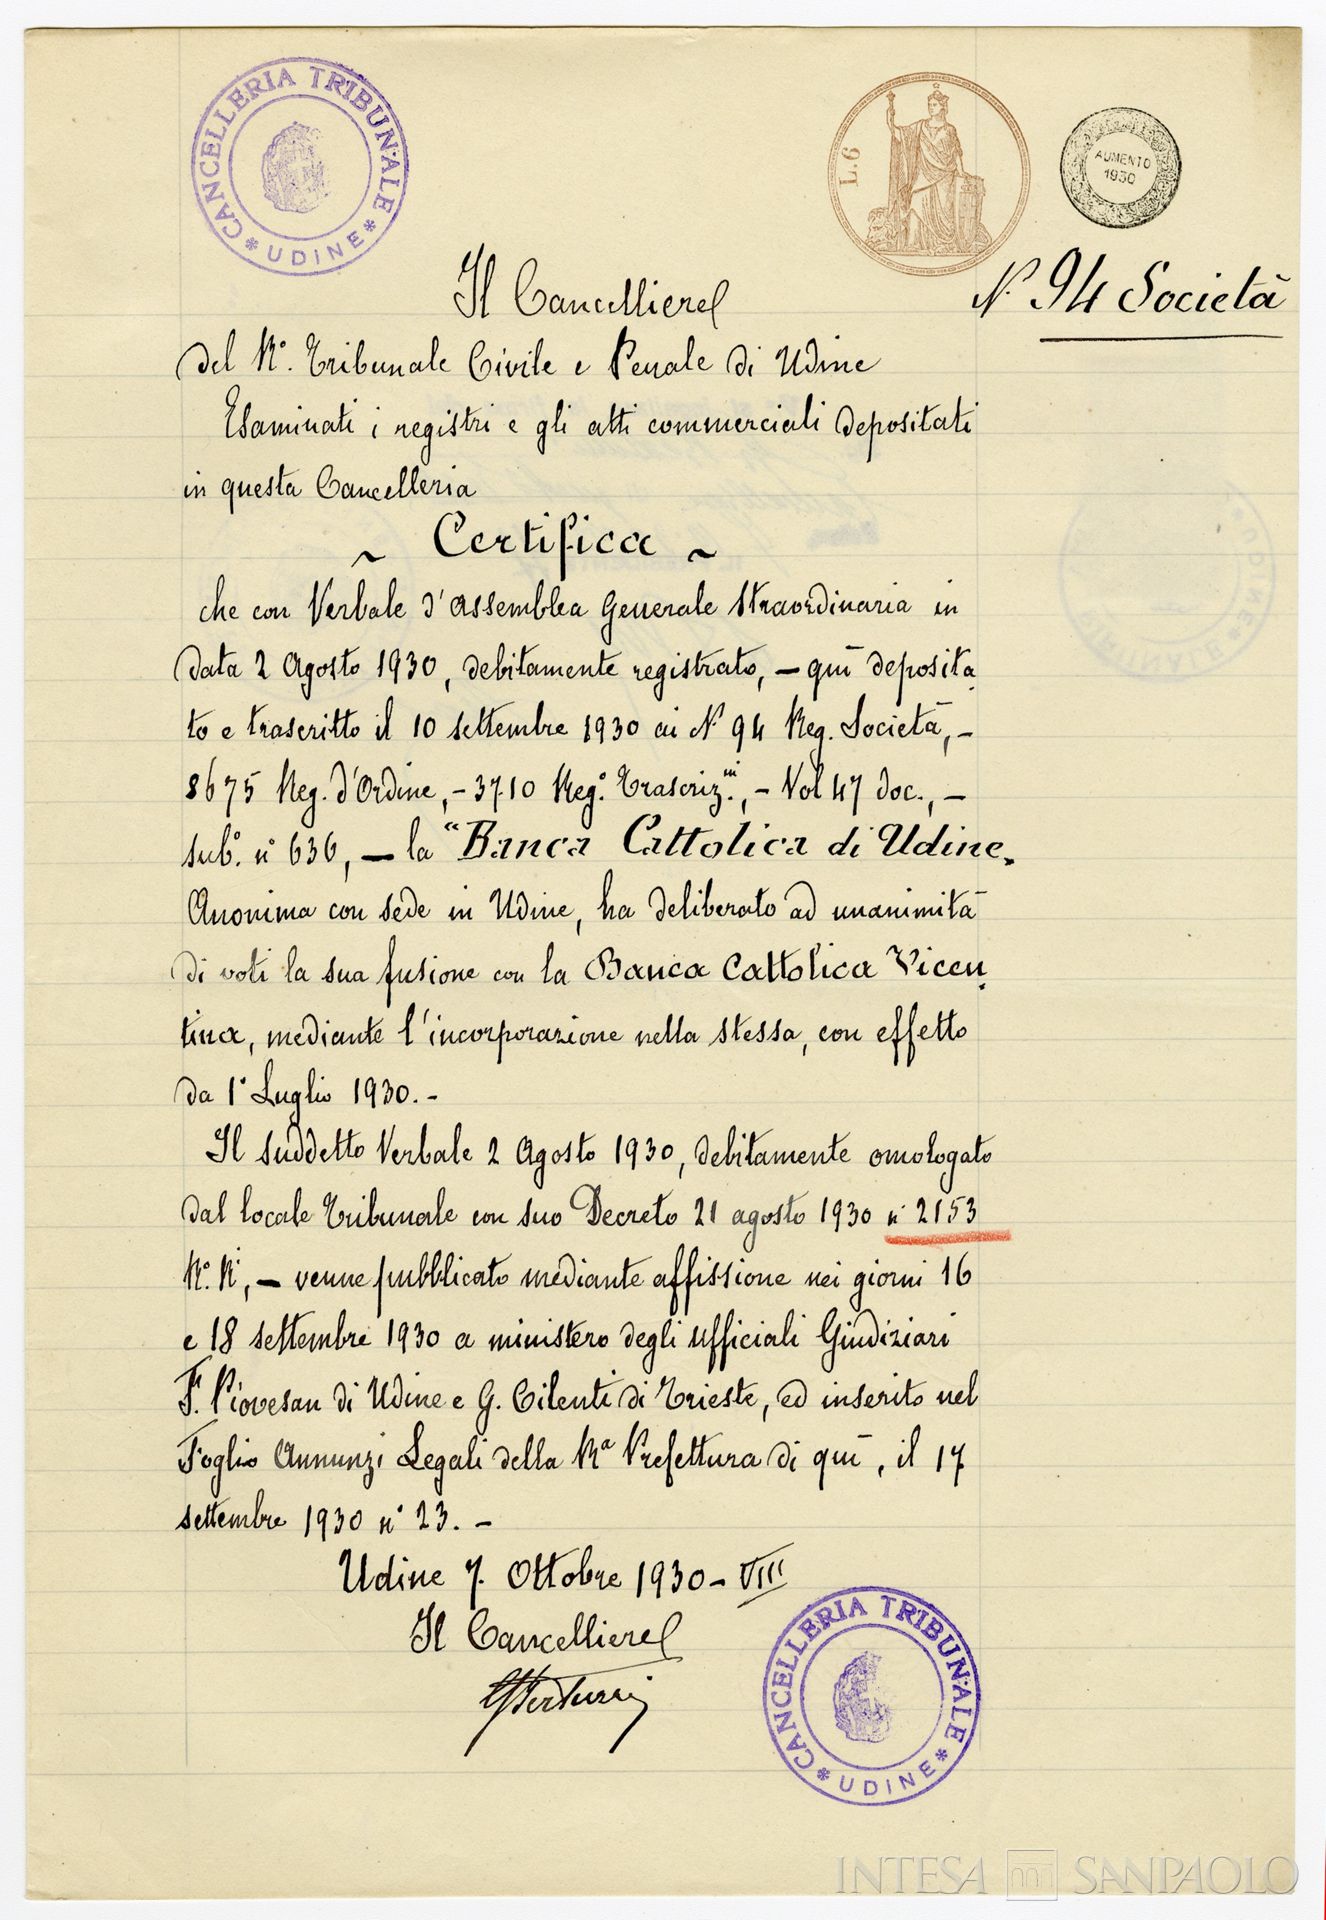 CANCELLERIA TRIBUNALE
* UDINE *
L.6
AUMENTO
1930
N. 94 Società
Il Cancelliere
del R.º Tribunale Civile e Penale di Udine
Esaminati i registri e gli atti commerciali depositati
in questa Cancelleria
~ Certifica ~
che con Verbale d'Assemblea Generale Straordinaria in
data 2 Agosto 1930, debitamente registrato, – quì deposita
to e trascritto il 10 settembre 1930 ai N. 94 Reg. Società, –
8675 Reg. d'Ordine, – 3710 Reg.º Trascriz.ni, – Vol 47 doc., –
sub.º n° 636, – la "Banca Cattolica di Udine„
Anonima con sede in Udine, ha deliberato ad unanimità
di voti la sua fusione con la Banca Cattolica Vicen
tina, mediante l'incorporazione nella stessa, con effetto
da 1° Luglio 1930. –
Il suddetto Verbale 2 Agosto 1930, debitamente omologato
dal locale Tribunale con suo Decreto 21 agosto 1930 n° 2153
R.º R., – venne pubblicato mediante affissione nei giorni 16
e 18 settembre 1930 a ministero degli ufficiali Giudiziari
F. Piovesan di Udine e G. Cilenti di Trieste, ed inserito nel
Foglio Annunzi Legali della Rª Prefettura di quì, il 17
settembre 1930 n° 23. –
Udine 7. Ottobre 1930 – VIII
Il Cancelliere
CANCELLERIA TRIBUNALE
* UDINE *
INTESA SANPAOLO